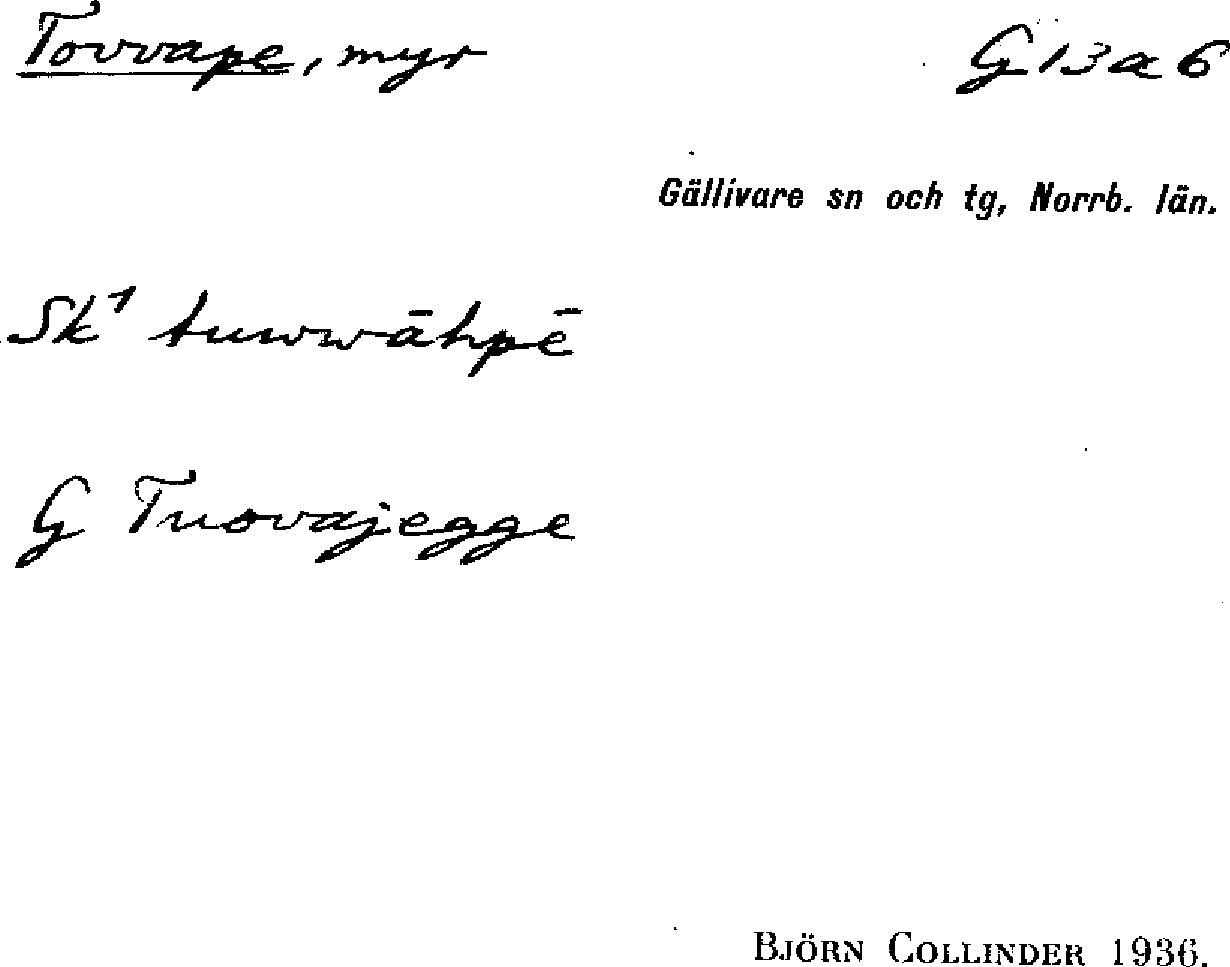 Tovvape, myr G 13 a 6
Gällivare sn och tg, Norrb. län.
Sk¹ tuvvwāhpē
G Tuovajegge
BJÖRN COLLINDER 1936.